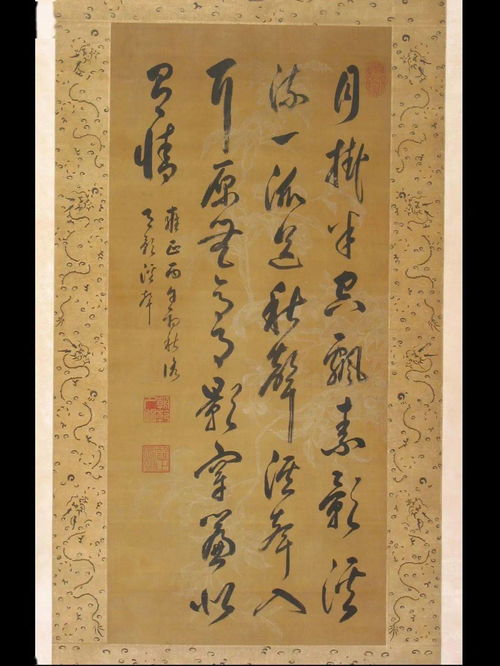 月掛半空飄素影溪
流一派送秋聲溪聲入
耳原無意月影穿簾似
有情
雍正丙午新秋詠
月影溪聲